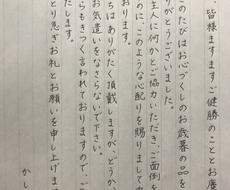 皆様ますますご健勝のこととお慶
のたびはお心づくしのお歳暮の品を
りがとうございました。
主人に何かとご協力いただき、ご面倒を
のに、このような心配りを賜りまして
おります。
ちはありがたく頂戴しますが、どうか、
お気遣いをなさらないで下さい。
らもきつく言われておりますので、ご
たします。
とり急ぎお礼とお願いを申し上げます
かし